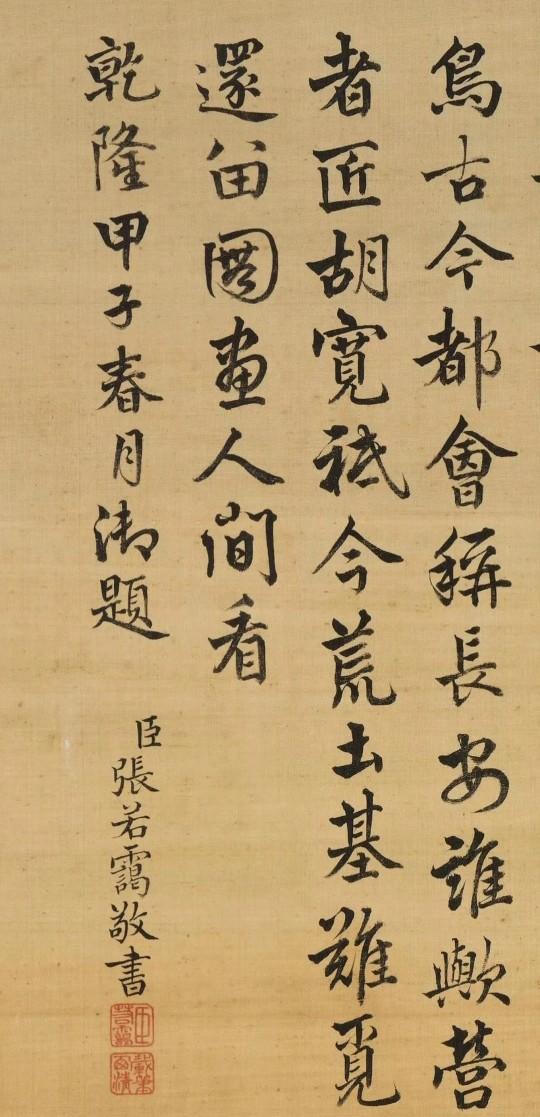 鳥古今都會稱長安誰歟營
者匠胡寬祗今荒土基難覓
還留圖畫人間看
乾隆甲子春月御題
臣張若靄敬書
臣若靄